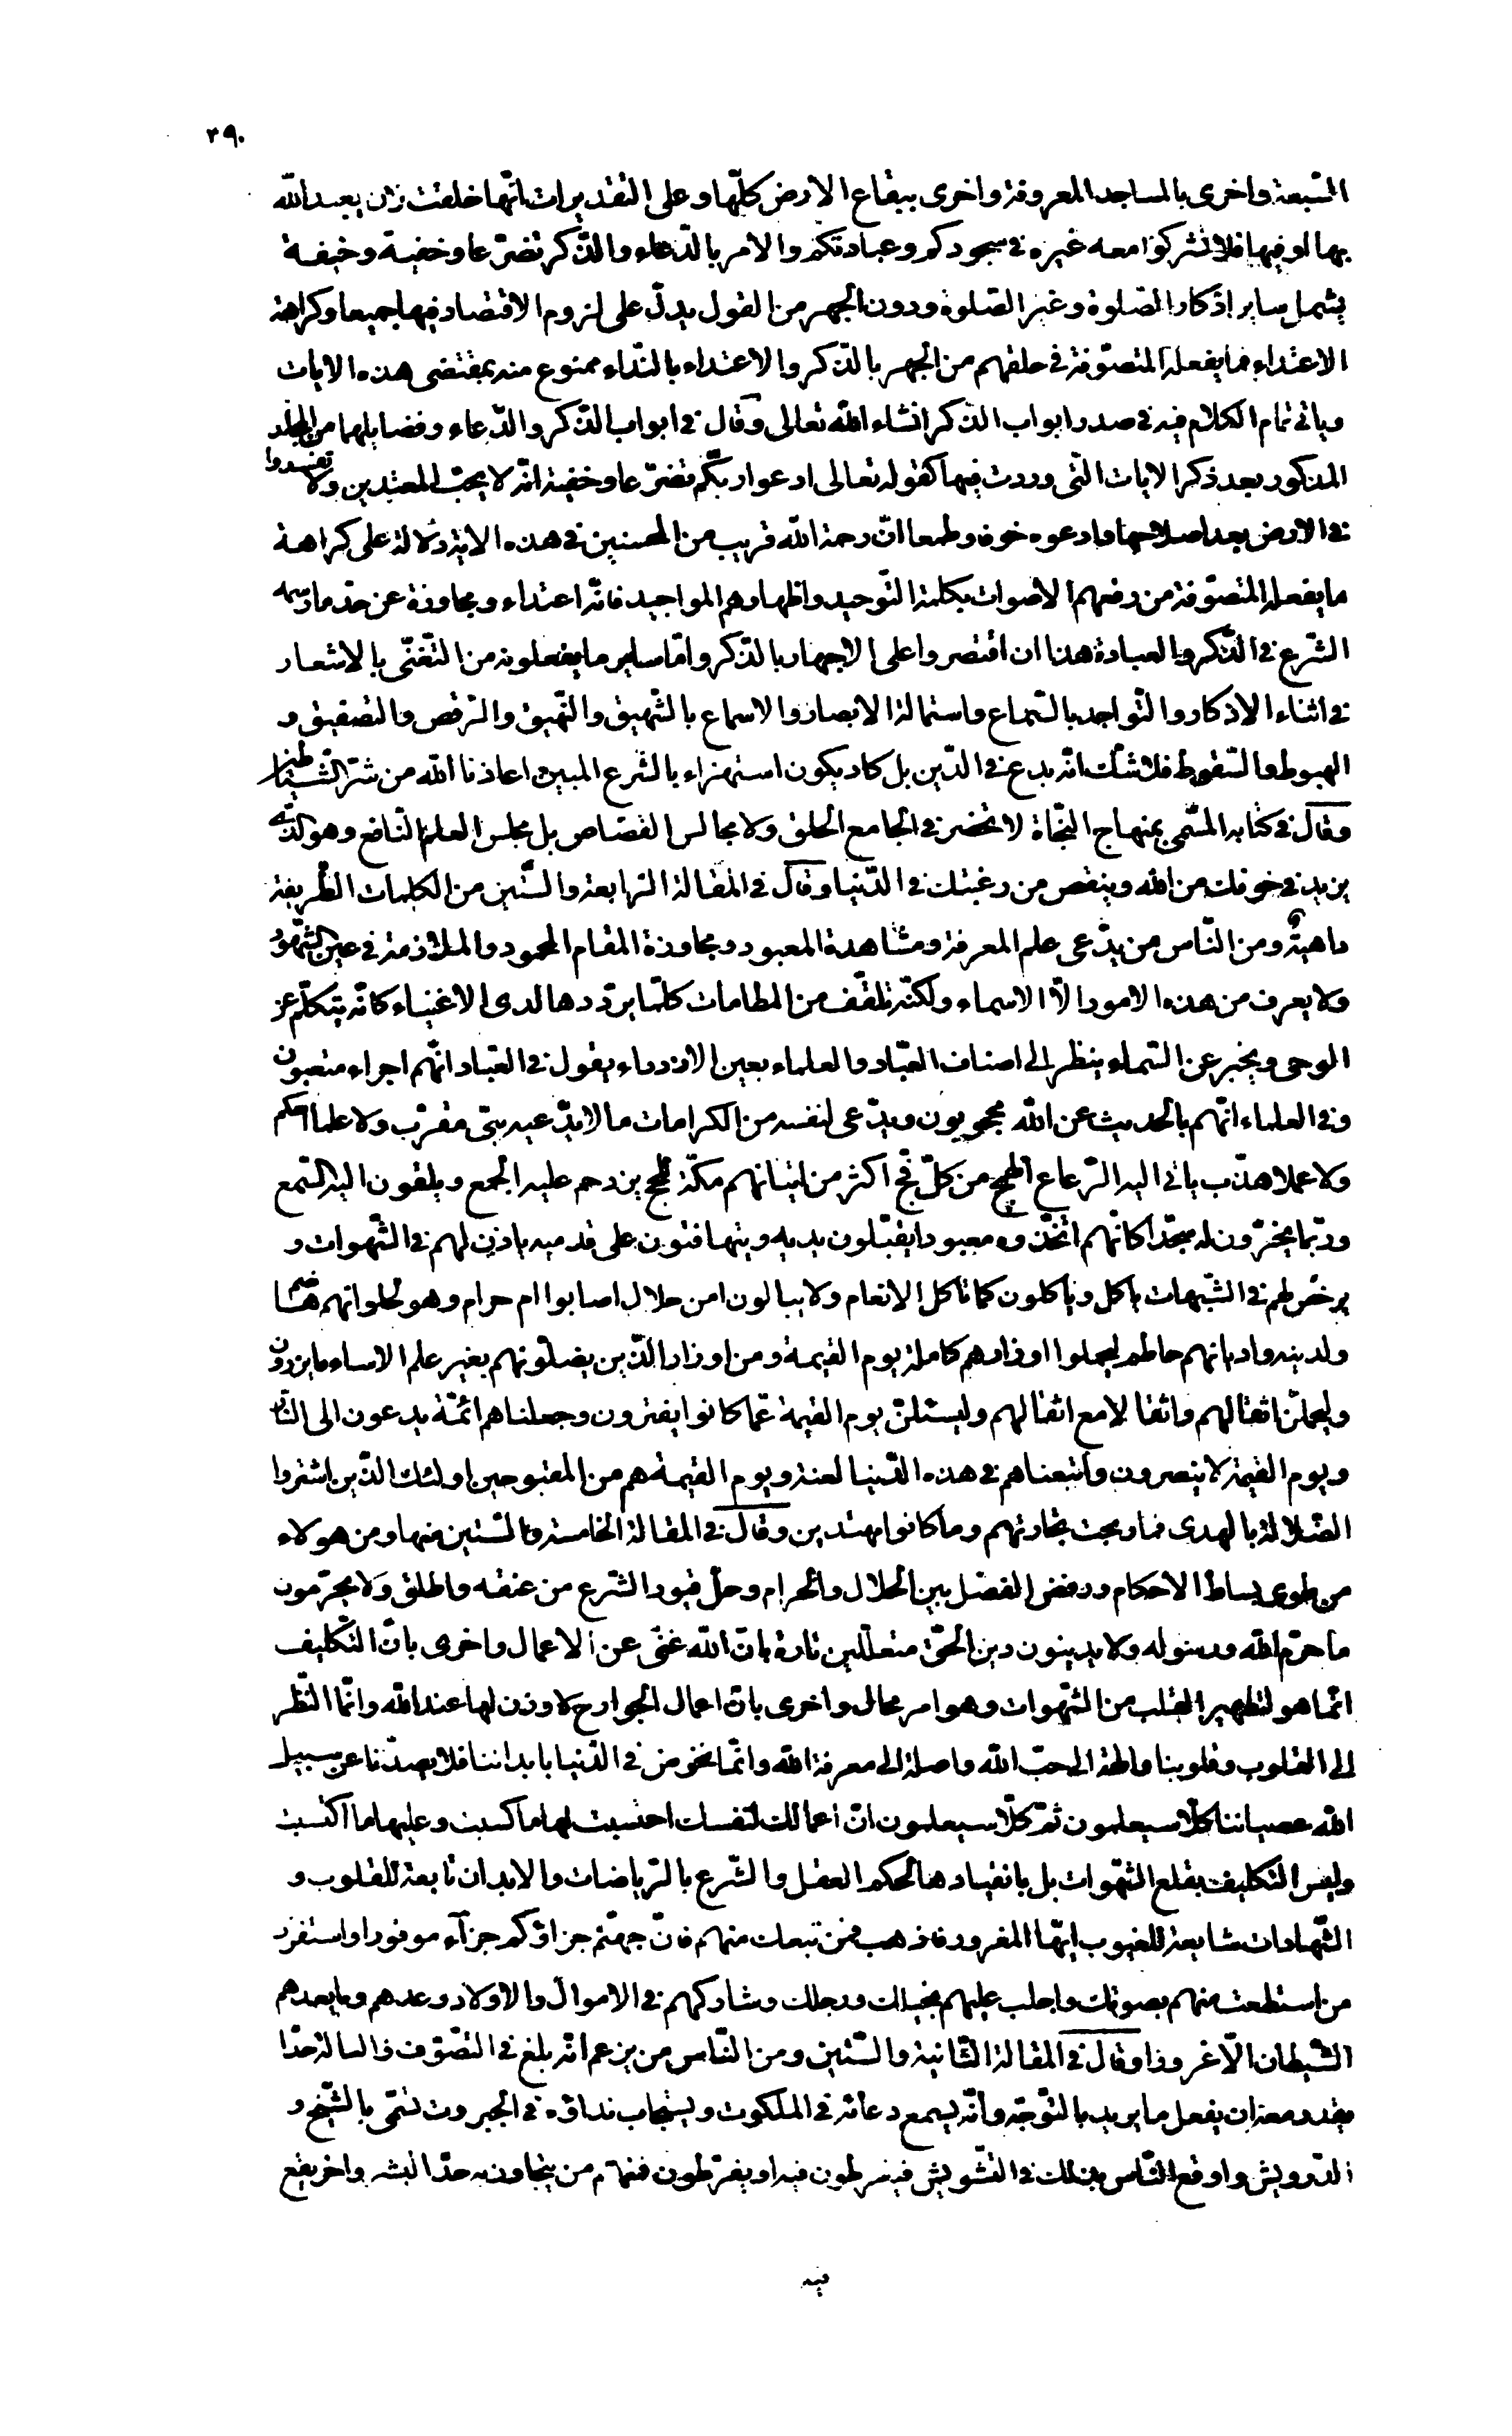 ٢٩٠
السّبعة واخرى بالمساجد المعروفة واخرى ببقاع الارض كلّها وعلى التقديرات انّها خلقت لان يعبد الله
بها او فيها فلا تشركوا معه غيره فى سجودكم وعبادتكم والامر بالدّعاء والذّكر تضرّعا وخفية وخيفة
يشمل ساير اذكار الصّلوة وغير الصّلوة ودون الجهر من القول يدلّ على لزوم الاقتصاد فيها جميعا وكراهة
الاعتداء فما يفعله المتصوّفة فى حلقهم من الجهر بالذّكر والاعتداء بالنّداء ممنوع منه بمقتضى هذه الايات
وياتى تمام الكلام فيه فى صدر ابواب الذّكر انشاء الله تعالى وقال فى ابواب الذّكر والدّعاء وفضايلهما من المجلد
المذكور بعد ذكر الايات الّتى وردت فيها كقوله تعالى ادعوا ربّكم تضرّعا وخفية انّه لا يحبّ المعتدين ولا تفسدوا
فى الارض بعد اصلاحها وادعوه خوفا وطمعا انّ رحمة الله قريب من المحسنين فى هذه الاية دلالة على كراهة
ما يفعله المتصوّفة من رفعهم الاصوات بكلمة التّوحيد واظهارهم المواجيد فانّه اعتداء ومجاوزة عن حدّ ما رسمه
الشّرع فى الذّكر والعبادة هذا ان اقتصروا على الاجهار بالذّكر وامّا ساير ما يفعلونه من التّغنّى بالاشعار
فى اثناء الاذكار والتّواجد بالسّماع واستمالة الابصار والاسماع بالشّهيق والنّهيق والرّقص والتصفيق و
الهبوط والسّقوط فلا شكّ انّه بدع فى الدّين بل كاد يكون استهزاء بالشّرع المبين اعاذنا الله من شرّ الشّياطين
وقال فى كتابه المسمّى بمنهاج النّجاة لا تحضر فى الجامع الحلق ولا مجالس القصّاص بل مجلس العلم النّافع وهو الذى
يزيد فى خوفك من الله وينقص من رغبتك فى الدّنيا وقال فى المقالة الرّابعة والسّتين من الكلمات الطّريفة
داهية ومن النّاس من يدّعى علم المعرفة ومشاهدة المعبود ومجاوزة المقام المحمود والملازمة فى عين الشّهود
ولا يعرف من هذه الامور الّا الاسماء ولكنّه تلقّف من الطامات كلمّا يردّدها لدى الاغنياء كانّه يتكلّم عن
الوحى ويخبر عن السّماء ينظر الى اصناف العبّاد والعلماء بعين الازدراء يقول فى العبّاد انّهم اجراء متعبون
وفى العلماء انّهم بالحديث عن الله محجوبون ويدّعى لنفسه من الكرامات ما لا يدّعيه نبىّ مقرّب ولا علما احكم
ولا عملا هذّب ياتى اليه الرّعاع الهمج من كلّ فجّ اكثر من اتيانهم مكّة للحج يزدحم عليه الجمع ويلقون اليه السّمع
وربّما يخرّون له سجّدا كانّهم اتّخذوه معبودا يقبّلون يديه ويتهافتون على قدميه ياذن لهم فى الشّهوات و
يرخّص لهم فى الشّبهات ياكل وياكلون كما تاكل الانعام ولا يبالون امن حلال اصابوا ام حرام وهو لحلوائهم هاضم
ولدينه واديانهم حاطم ليحملوا اوزارهم كاملة يوم القيمة ومن اوزار الّذين يضلّونهم بغير علم الا ساء ما يزرون
وليحملنّ اثقالهم واثقالا مع اثقالهم وليسئلنّ يوم القيمة عمّا كانوا يفترون وجعلناهم ائمّة يدعون الى النّار
ويوم القيمة لا ينصرون واتبعناهم فى هذه الدّنيا لعنة ويوم القيمة هم من المقبوحين اولئك الّذين اشتروا
الضّلالة بالهدى فما ربحت تجارتهم وما كانوا مهتدين وقال فى المقالة الخامسة والسّتين منها ومن هولاء
من طوى بساط الاحكام ورفض الفصل بين الحلال والحرام وحلّ قيود الشّرع من عنقه واطلق ولا يحرّمون
ما حرّم الله ورسوله ولا يدينون دين الحقّ متعلّلين تارة بانّ الله غنىّ عن الاعمال واخرى بانّ التّكليف
انّما هو لتطهير القلب من الشّهوات وهو امر محال واخرى بانّ اعمال الجوارح لا وزن لها عند الله وانّما النّظر
الى القلوب وقلوبنا والهة الى حبّ الله واصلة الى معرفة الله وانّما نخوض فى الدّنيا بابداننا فلا يصدّنا عن سبيل
الله عصياننا كلّا سيعلمون ثمّ كلّا سيعلمون انّ اعمالك لنفسك احتسبت لها ما كسبت وعليها ما اكتسبت
وليس التكليف بقلع الشّهوات بل بانقيادها لحكم العقل والشّرع بالرّياضات والابدان تابعة للقلوب و
الشّهادات مشايعة للغيوب ايّها المغرور فاذهب فمن تبعك منهم فانّ جهنّم جزاؤكم جزآء موفورا واستفزز
من استطعت منهم بصوتك واجلب عليهم بخيلك ورجلك وشاركهم فى الاموال والاولاد وعدهم وما يعدهم
الشّيطان الّا غرورا وقال فى المقالة الثّانية والسّتين ومن النّاس من يزعم انّه بلغ فى التصّوف والتالّه حدّا
يقدر معه ان يفعل ما يريد بالتّوجّه وانّه يسمع دعائه فى الملكوت ويستجاب نداؤه فى الجبروت تسمّى بالشّيخ و
الدّرويش واوقع النّاس بذلك فى التّشويش فيفرطون فيه او يفرّطون فمنهم من يتجاوز به حدّ البشر واخر يقع
فيه